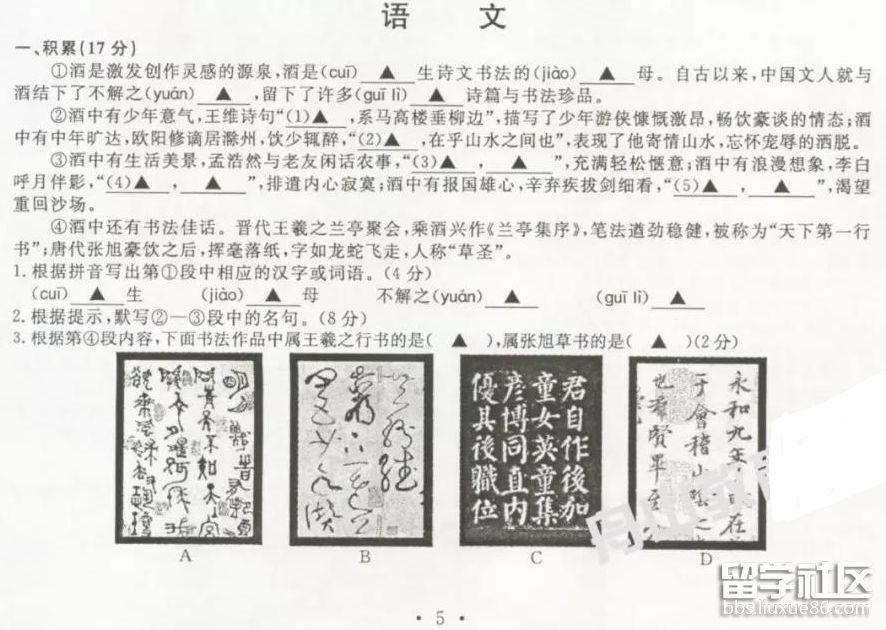 语 文
一、积累(17分)
①酒是激发创作灵感的源泉,酒是(cuī) ▲ 生诗文书法的(jiào) ▲ 母。自古以来,中国文人就与
酒结下了不解之(yuán) ▲ ,留下了许多(guī lì) ▲ 诗篇与书法珍品。
②酒中有少年意气,王维诗句“(1)▲ ,系马高楼垂柳边”,描写了少年游侠慷慨激昂,畅饮豪谈的情态;酒
中有中年旷达,欧阳修谪居滁州,饮少辄醉,“(2)▲ ,在乎山水之间也”,表现了他寄情山水,忘怀宠辱的洒脱。
③酒中有生活美景,孟浩然与老友闲话农事,“(3)▲ , ▲ ”,充满轻松惬意;酒中有浪漫想象,李白
呼月伴影,“(4)▲ , ▲ ”,排遣内心寂寞;酒中有报国雄心,辛弃疾拔剑细看,“(5)▲ , ▲ ”,渴望
重回沙场。
④酒中还有书法佳话。晋代王羲之兰亭聚会,乘酒兴作《兰亭集序》,笔法遒劲稳健,被称为“天下第一行
书”;唐代张旭豪饮之后,挥毫落纸,字如龙蛇飞走,人称“草圣”。
1.根据拼音写出第①段中相应的汉字或词语。(4分)
(cuī) ▲ 生 (jiào) ▲ 母 不解之(yuán) ▲ (guī lì) ▲
2.根据提示,默写②—③段中的名句。(8分)
3.根据第④段内容,下面书法作品中属王羲之行书的是( ▲ ),属张旭草书的是( ▲ )(2分)
君自作後加
童女英童集
彦博同直内
優其後職位
永和九
于會稽山
也羣賢畢至
A B C D
留学社区
bbs.liuxue86.com
• 5 •